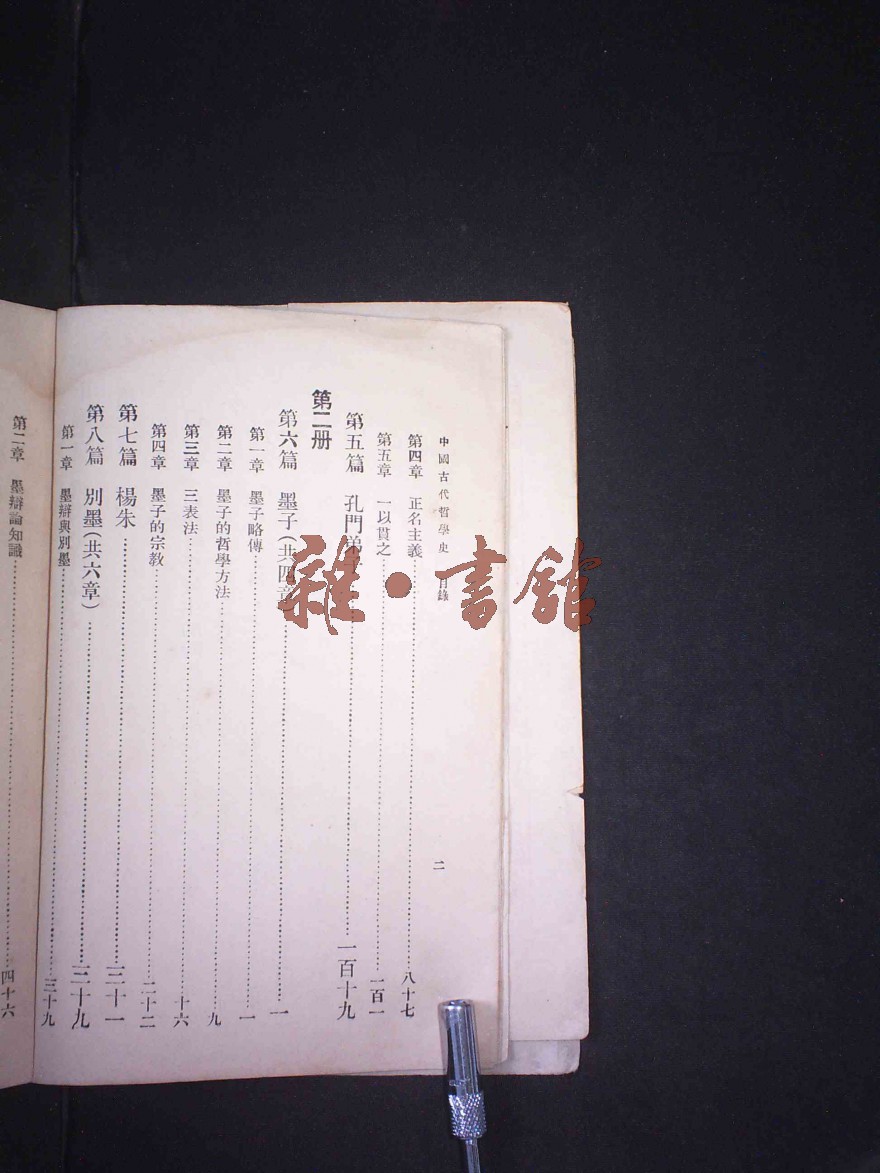 中國古代哲學史 目錄
二
第四章 正名主義 八十七
第五章 一以貫之 一百一
第五篇 孔門弟子 一百十九
第二册
第六篇 墨子(共四章) 一
第一章 墨子略傳 一
第二章 墨子的哲學方法 九
第三章 三表法 十六
第四章 墨子的宗教 二十二
第七篇 楊朱 三十一
第八篇 別墨(共六章) 三十九
第一章 墨辯與別墨 三十九
第二章 墨辯論知識 四十六
雜·書館